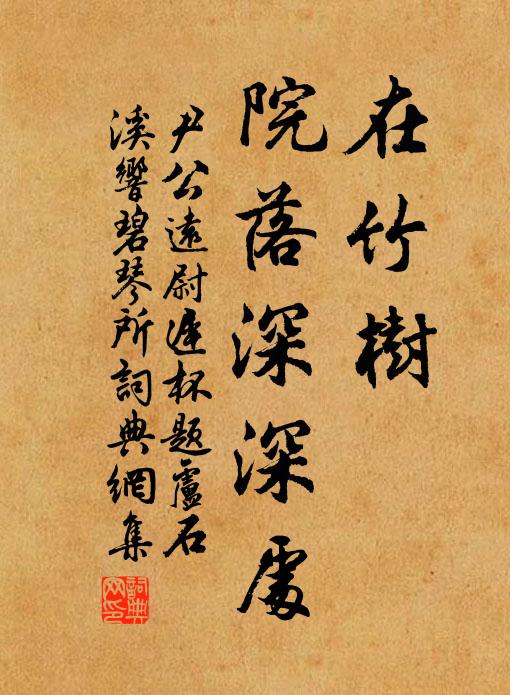 在竹樹
院落深深處
尹公遠尉遲杯題盧石
溪響碧琴所詞典網集
詞典网印